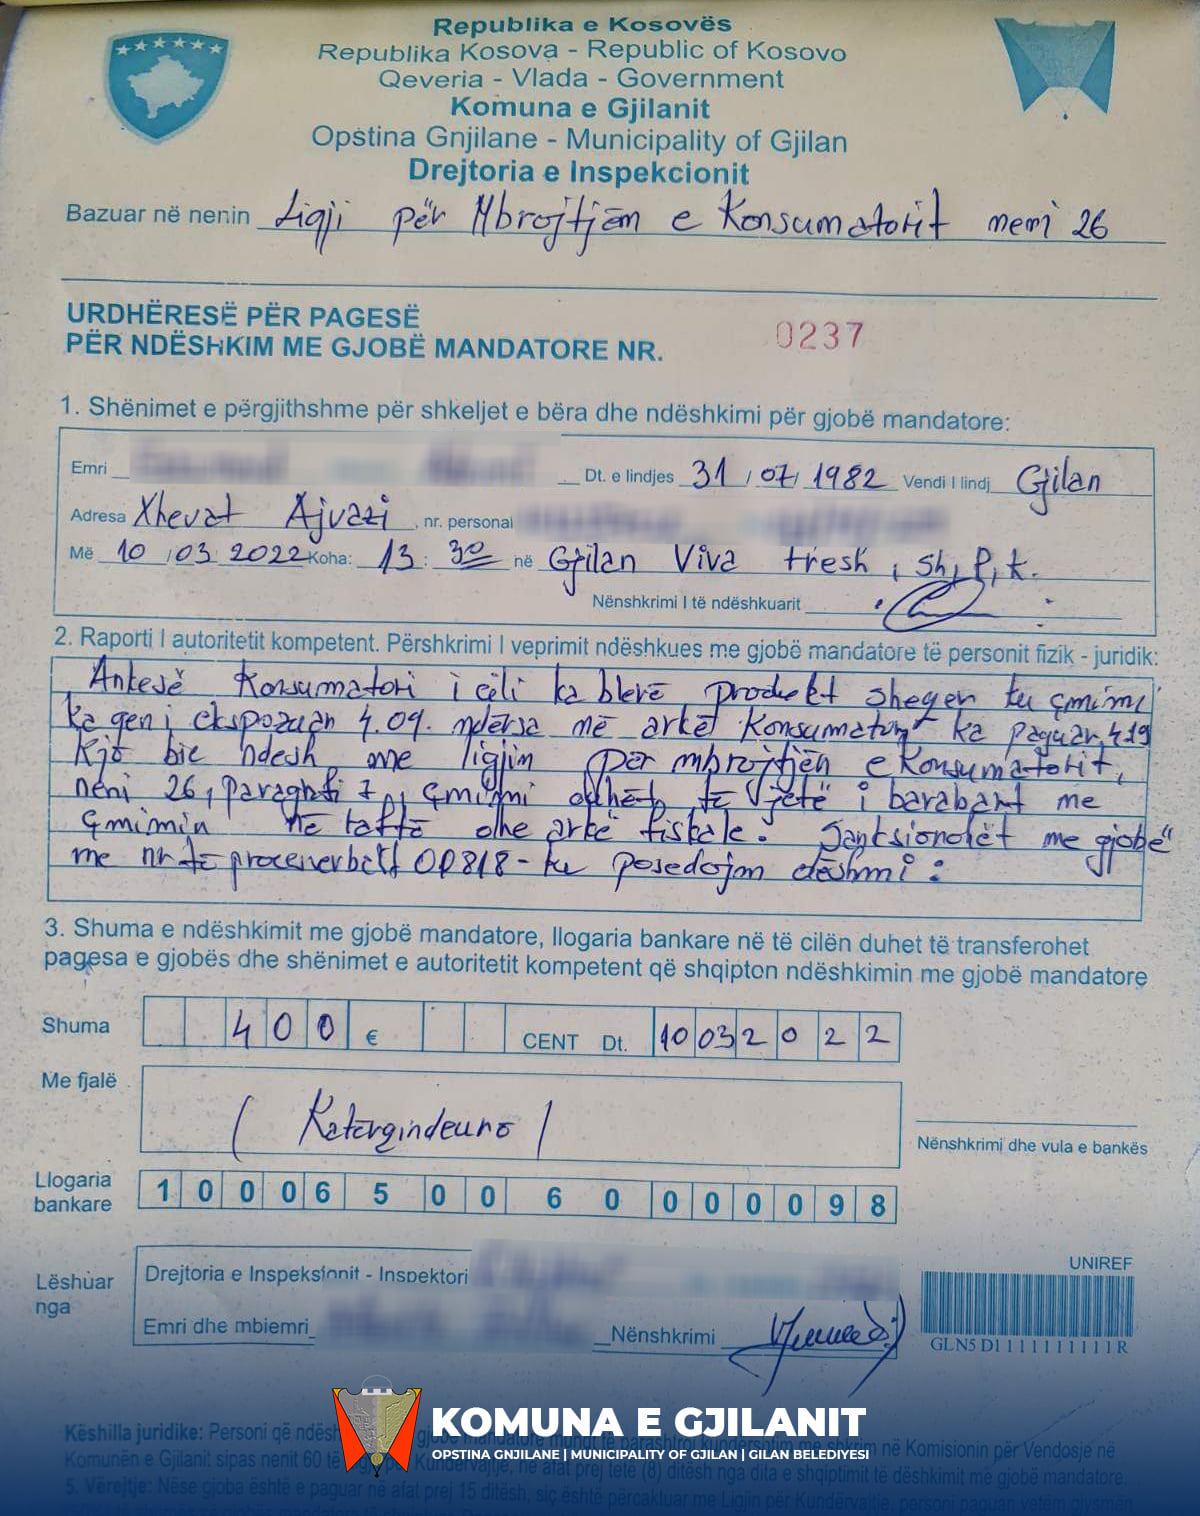 Republika e Kosovës
Republika Kosova - Republic of Kosovo
Qeveria - Vlada - Government
Komuna e Gjilanit
Opština Gnjilane - Municipality of Gjilan
Drejtoria e Inspekcionit
Bazuar në nenin Ligji për Mbrojtjën e Konsumatorit neni 26
URDHËRESË PËR PAGESË
PËR NDËSHKIM ME GJOBË MANDATORE NR. 0237
1. Shënimet e përgjithshme për shkeljet e bëra dhe ndëshkimi për gjobë mandatore:
Emri Dt. e lindjes 31/07/1982 Vendi I lindj Gjilan
Adresa Xhevat Ajvazi, nr. personal
Më 10/03/2022 Koha: 13:30 në Gjilan Viva fresh, sh,p,k.
Nënshkrimi I të ndëshkuarit
2. Raporti I autoritetit kompetent. Përshkrimi I veprimit ndëshkues me gjobë mandatore të personit fizik - juridik:
Ankesë Konsumatori i cili ka blerë produkt sheqer ku çmimi
ka qen i ekspozuar 4.09. ndërsa në arkë Konsumatori ka paguar 4.19
Kjo bie ndesh me ligjin për mbrojtjën e Konsumatorit,
neni 26, paragrafi 7, çmimi duhet të jetë i barabart me
çmimin në raftë dhe arkë fiskale. Sanksionohët me gjobë
me nr të procesverbalit 00818 - ku posedojm dëshmi:
3. Shuma e ndëshkimit me gjobë mandatore, llogaria bankare në të cilën duhet të transferohet
pagesa e gjobës dhe shënimet e autoritetit kompetent që shqipton ndëshkimin me gjobë mandatore
Shuma 400 € CENT Dt. 10032022
Me fjalë (Katërqindeuro)
Nënshkrimi dhe vula e bankës
Llogaria bankare 1000650060000098
Lëshuar nga
Drejtoria e Inspeksionit - Inspektori
Emri dhe mbiemri Nënshkrimi
UNIREF
GLN5D1111111111R
KOMUNA E GJILANIT
OPSTINA GNJILANE | MUNICIPALITY OF GJILAN | GILAN BELEDIYESI
Këshilla juridike: Personi që ndësh gjobë mandatore mund të parashtroj kundërshtim me shkrim në Komisionin për Vendosje në
Komunën e Gjilanit sipas nenit 60 të Kundërvajtje, në afat prej tetë (8) ditësh nga dita e shqiptimit të dëshkimit më gjobë mandatore.
5. Vërejtje: Nëse gjoba është e paguar në afat prej 15 ditësh, siç është përcaktuar me Ligjin për Kundërvajtje, personi paguan vetëm gjysmën